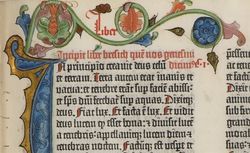 Liber
Incipit liber bresith quē nos genesim
N principio creavit deus celū dicim⁹
et terram. Terra autem erat inanis et
vacua: et tenebre erāt sup faciē abissi:
et spūs dni ferebatur sup aquas. Dixitq;
deus. Fiat lux. Et facta ē lux. Et vidit
deus lucem q esset bona: et divisit lucē
a tenebris. appellavitq; lucem diem et
tenebras noctem. Factūq; est vespe et